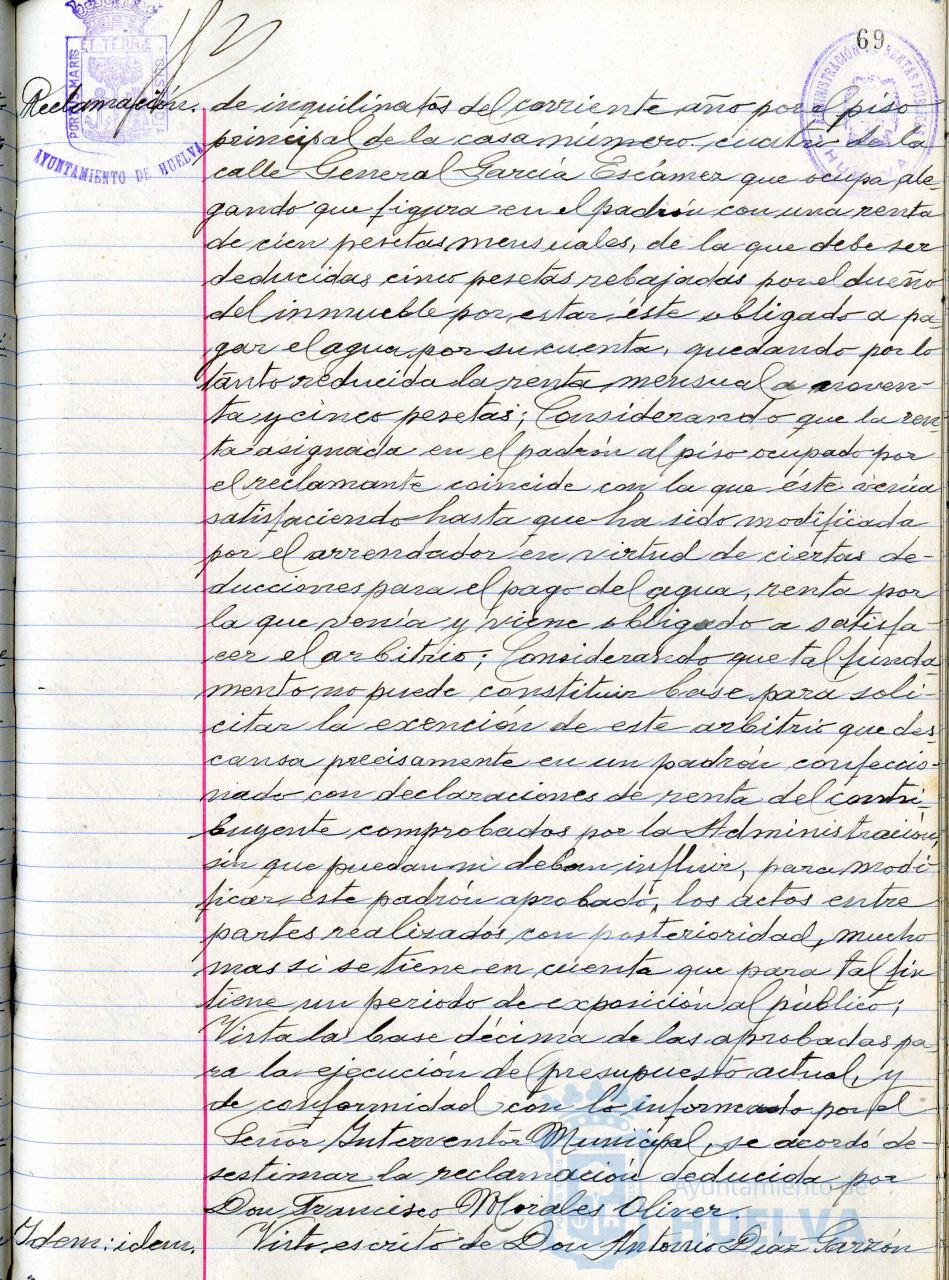 69
PORTUS MARIS ET TERRÆ CUSTODIA
AYUNTAMIENTO DE HUELVA
ADMINISTRACIÓN DE RENTAS
HUELVA
Reclamación. de inquilinatos del corriente año por el piso
principal de la casa número cuatro de la
calle General García Escámez que ocupa, ale-
gando que figura en el padrón con una renta
de cien pesetas mensuales, de la que debe ser
deducidas cinco pesetas rebajadas por el dueño
del inmueble por estar éste obligado a pa-
gar el agua por su cuenta, quedando por lo
tanto reducida la renta mensual a noven-
ta y cinco pesetas; Considerando que la ren-
ta asignada en el padrón al piso ocupado por
el reclamante coincide con la que éste venía
satisfaciendo hasta que ha sido modificada
por el arrendador en virtud de ciertas de-
ducciones para el pago del agua, renta por
la que venía y viene obligado a satisfa-
cer el arbitrio; Considerando que tal funda-
mento no puede constituir base para soli-
citar la exención de este arbitrio que des-
cansa precisamente en un padrón confeccio-
nado con declaraciones de renta del contri-
buyente comprobados por la Administración,
sin que puedan ni deban influir, para modi-
ficar este padrón aprobado, los actos entre
partes realizados con posterioridad, mucho
mas si se tiene en cuenta que para tal fin
tiene un periodo de exposición al público;
Vista la base décima de las aprobadas pa-
ra la ejecución del presupuesto actual, y
de conformidad con lo informado por el
Señor Interventor Municipal, se acordó de-
sestimar la reclamación deducida por
Don Francisco Morales Oliver
Idem: idem. Visto escrito de Don Antonio Díaz Garzón
Ayuntamiento de
HUELVA